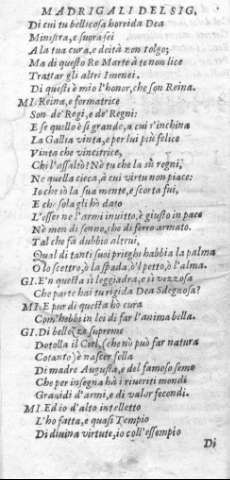 MADRIGALI DEL SIG.
Di cui tu bellicosa horrida Dea
Ministra, e suora sei
A la tua cura, e deità non tolgo;
Ma di questo Re Marte à te non lice
Trattar gli altri Imenei.
Di questi è mio l'honor, che son Reina.
MI. Reina, e formatrice
Son de' Regi, e de' Regni:
E se quello è sì grande, a cui s'inchina
La Gallia vinta, e per lui più felice
Vinta che vincitrice,
Chi l'essaltò? Nò tu che la sù regni,
Ne quella cieca, à cui virtu non piace:
Io che iò la sua mente, e scorta fui,
E chi sola gli hò dato
L'esser ne l'armi inuitto, è giusto in pace
Nè men di senno, che di ferro armato.
Tal che fa dubbio altrui,
Qual di tanti suoi prieghi habbia la palma
O lo scettro, ò la spada, ò'l petto, ò l'alma.
GI. E'n quella sì leggiadra, e sì vezzosa
Che parte hai tu rigida Dea Sdegnosa?
MI. E pur di questa hò cura
Com'hebbi in lei di far l'anima bella.
GI. Di bellezze supreme
Dotolla il Ciel, (che nò può far natura
Cotanto) è nascer fella
Di madre Augusta, e del famoso seme
Che per insegna hà i riueriti mondi
Grauidi d'armi, e di valor fecondi.
MI. Ed io d'alto intelletto
L'ho fatta, e quasi Tempio
Di diuina virtute, io coll'essempio
Di